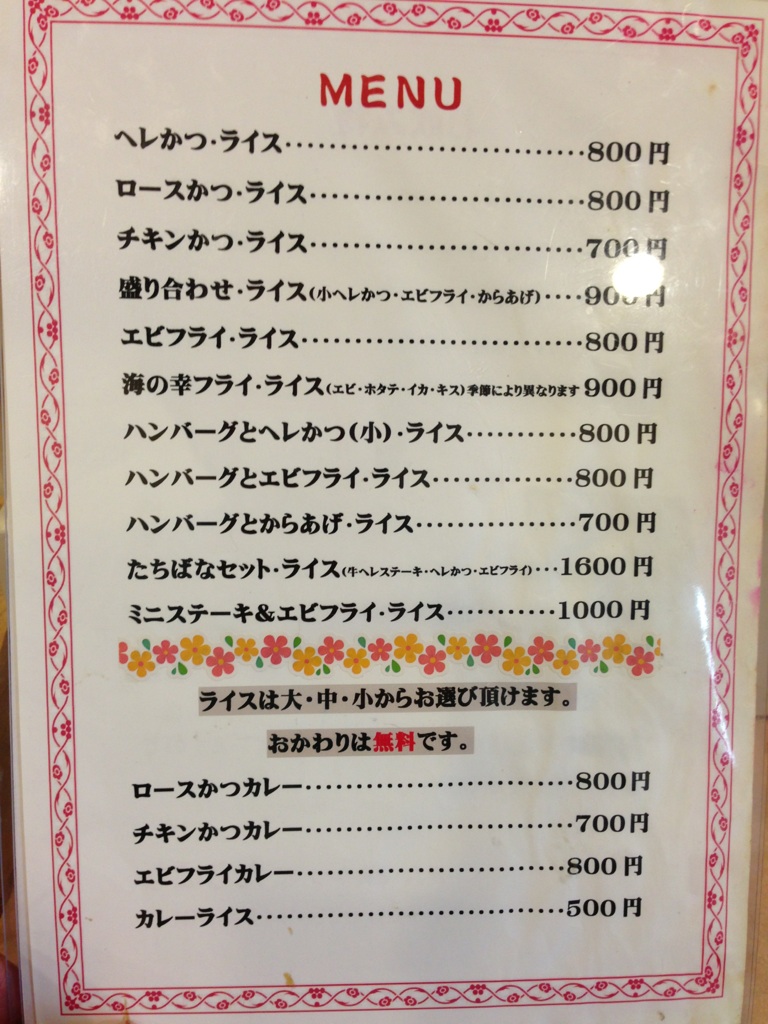 MENU
ヘレかつ・ライス‥‥‥‥‥‥‥‥‥‥‥‥‥800円
ロースかつ・ライス‥‥‥‥‥‥‥‥‥‥‥‥800円
チキンかつ・ライス‥‥‥‥‥‥‥‥‥‥‥‥700円
盛り合わせ・ライス(小ヘレかつ・エビフライ・からあげ)‥‥900円
エビフライ・ライス‥‥‥‥‥‥‥‥‥‥‥‥800円
海の幸フライ・ライス(エビ・ホタテ・イカ・キス)季節により異なります 900円
ハンバーグとヘレかつ(小)・ライス‥‥‥‥‥800円
ハンバーグとエビフライ・ライス‥‥‥‥‥‥800円
ハンバーグとからあげ・ライス‥‥‥‥‥‥‥700円
たちばなセット・ライス(牛ヘレステーキ・ヘレかつ・エビフライ)‥・1600円
ミニステーキ&エビフライ・ライス‥‥‥‥‥1000円
ライスは大・中・小からお選び頂けます。
おかわりは無料です。
ロースかつカレー‥‥‥‥‥‥‥‥‥‥‥‥800円
チキンかつカレー‥‥‥‥‥‥‥‥‥‥‥‥700円
エビフライカレー‥‥‥‥‥‥‥‥‥‥‥‥800円
カレーライス‥‥‥‥‥‥‥‥‥‥‥‥‥‥500円